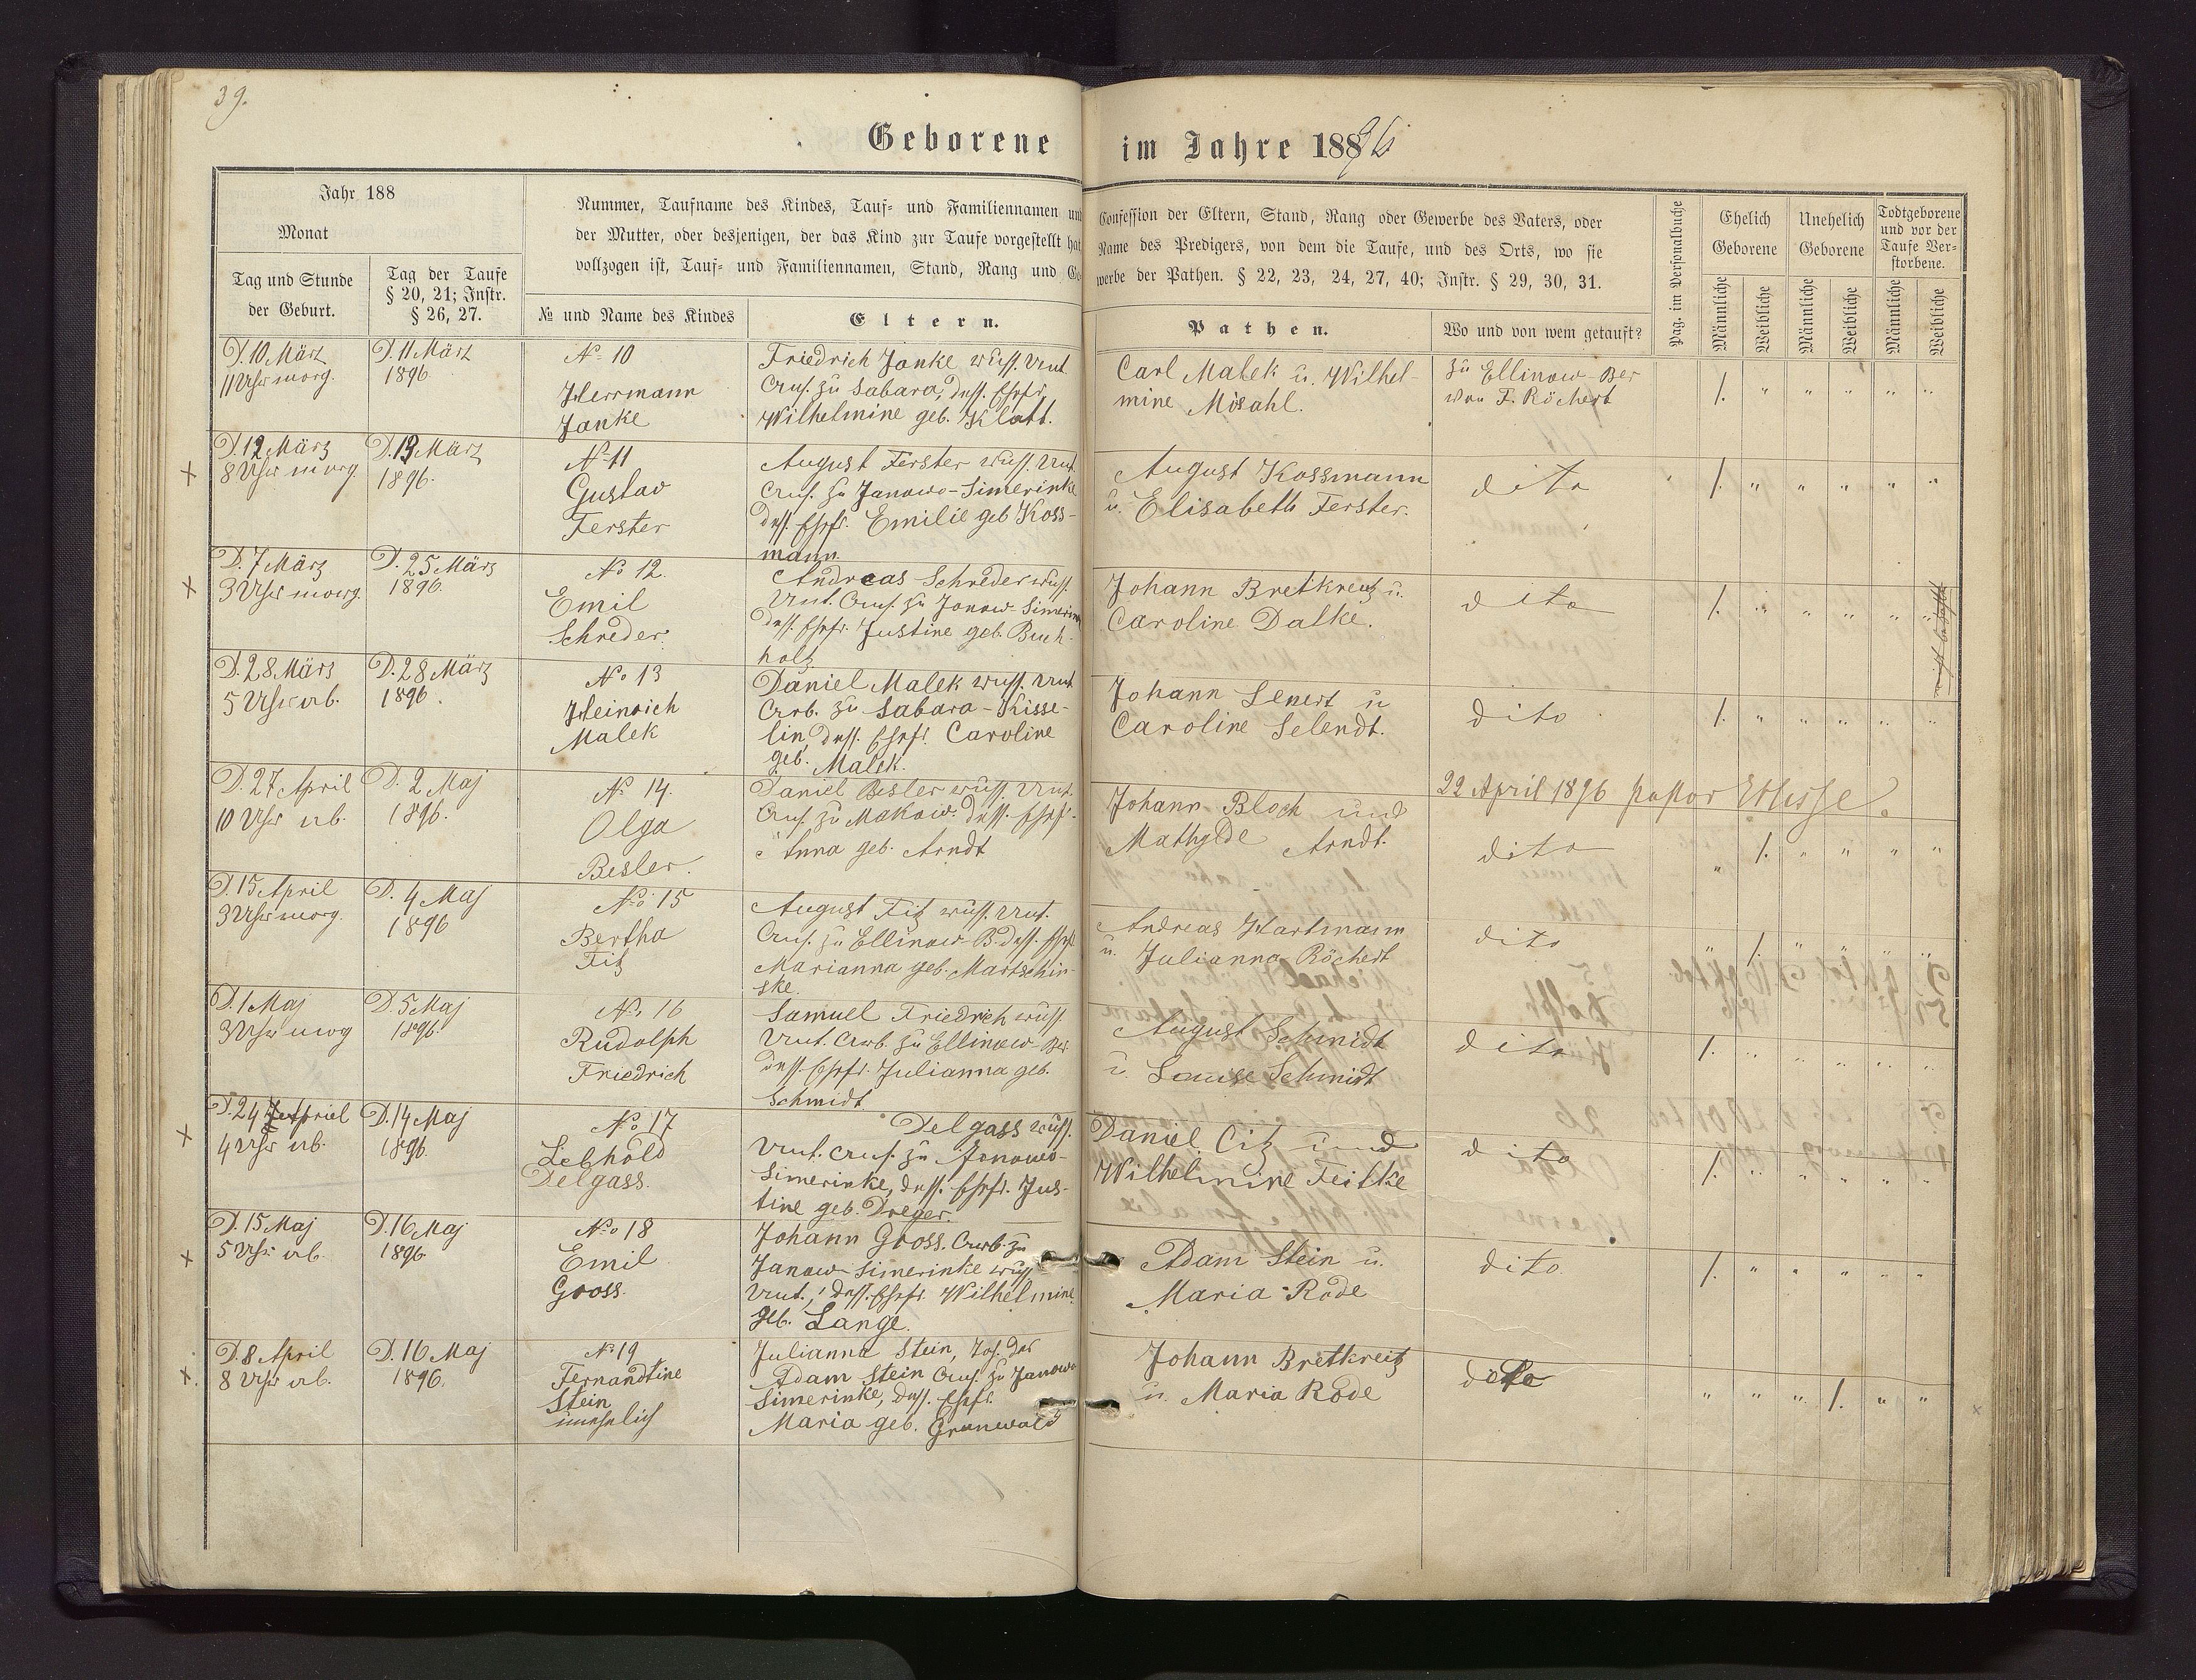 39.
Geborene im Jahre 1896
Jahr 188
Monat
Tag und Stunde
der Geburt.
Tag der Taufe
§ 20, 21; Instr.
§ 26, 27.
Nummer, Taufname des Kindes, Tauf- und Familiennamen und
der Mutter, oder desjenigen, der das Kind zur Taufe vorgestellt hat
vollzogen ist, Tauf- und Familiennamen, Stand, Rang und Ge-
№ und Name des Kindes
Eltern.
Confession der Eltern, Stand, Rang oder Gewerbe des Vaters, oder
Name des Predigers, von dem die Taufe, und des Orts, wo sie
werbe der Pathen. § 22, 23, 24, 27, 40; Instr. § 29, 30, 31.
Pathen.
Wo und von wem getauft?
Pag. im Personalbuche
Ehelich
Geborene
Unehelich
Geborene
Todtgeborene
und vor der
Taufe Ver-
storbene.
Männliche
Weibliche
Männliche
Weibliche
Männliche
Weibliche
D. 10 März
11 Uhr morg.
D. 11 März
1896.
No 10
Herrmann
Janke
Friedrich Janke russ. Unt.
Ans. zu Sabara, dess. Ehefr.
Wilhelmine geb. Klatt.
Carl Malek u. Wilhel-
mine Misahl.
zu Ellinow-Ber
von F. Röchert
/. " " " " "
x
D. 12 März
8 Uhr morg.
D. 13 März
1896.
No 11
Gustav
Ferster
August Ferster russ. Unt.
Ans. zu Janowo-Simerinke
dess. Ehefr. Emilie geb Koss-
mann
August Kossmann
u. Elisabeth Ferster.
dito
/. " " " " "
x
D. 7 März
3 Uhr morg.
D. 25 März
1896.
No 12.
Emil
Schreder.
Andreas Schreder russ.
Unt. Ans. zu Janow-Simerin
dess. Ehefr. Justine geb. Buch-
holz
Johann Bretkreutz u.
Caroline Dalke.
dito
/. " " " " "
D. 28 März
5 Uhr ab.
D. 28 März
1896.
No 13
Heinrich
Malek
Daniel Malek russ. Unt
Arb. zu Sabara-Kisse-
lin, dess. Ehefr. Caroline
geb. Malek.
Johann Lenert u
Caroline Selendt.
dito
/. " " " " "
22 April 1896 pastor
D. 27 April
10 Uhr ab.
D. 2 Maj
1896.
No 14.
Olga
Besler.
Daniel Besler russ. Unt.
Ans. zu Makow. dess. Ehefr.
Anna geb. Arndt
Johann Bloch und
Mathylde Arndt.
dito
" /. " " " "
D. 15 April
3 Uhr morg.
D. 4 Maj
1896
No 15
Bertha
Fitz
August Fitz russ. Unt.
Ans. zu Ellinow-B. dess. Ehefr
Marianna geb. Martschin-
ske.
Andreas Hartmann
u. Julianna Röchert
dito
" /. " " " "
D. 1 Maj
3 Uhr morg
D. 5 Maj
1896.
No 16
Rudolph
Friedrich
Samuel Friedrich russ
Unt. Arb. zu Ellinow-Ber
dess. Ehefr. Julianna geb.
Schmidt
August Schmidt
u. Louise Schmidt
dito
/. " " " " "
x
D. 24 April
4 Uhr ab.
D. 14 Maj
1896.
No 17
Liebhold
Delgass.
Delgass russ.
Unt. Ans. zu Janowo-
Simerinke, dess. Ehefr. Jus-
tine geb. Dreger.
Daniel Citz und
Wilhelmine Feitke
dito
/. " " " " "
x
D. 15 Maj
5 Uhr ab.
D. 16 Maj
1896
No 18
Emil
Gross.
Johann Gross. Arb. zu
Janow-Simerinke russ
Unt., dess. Ehefr. Wilhelmine
geb. Lange.
Adam Stein u.
Maria Rode
dito.
/. " " " " "
x
D. 8 April
8 Uhr ab.
D. 16 Maj
1896.
No 19
Fernandtine
Stein
unehelich
Julianna Stein, Toch. der
Adam Stein Ans. zu Janowo
Simerinke, dess. Ehefr.
Maria geb. Grunwald
Johann Bretkreitz
u. Maria Rode
dito
" " " /. " "
x